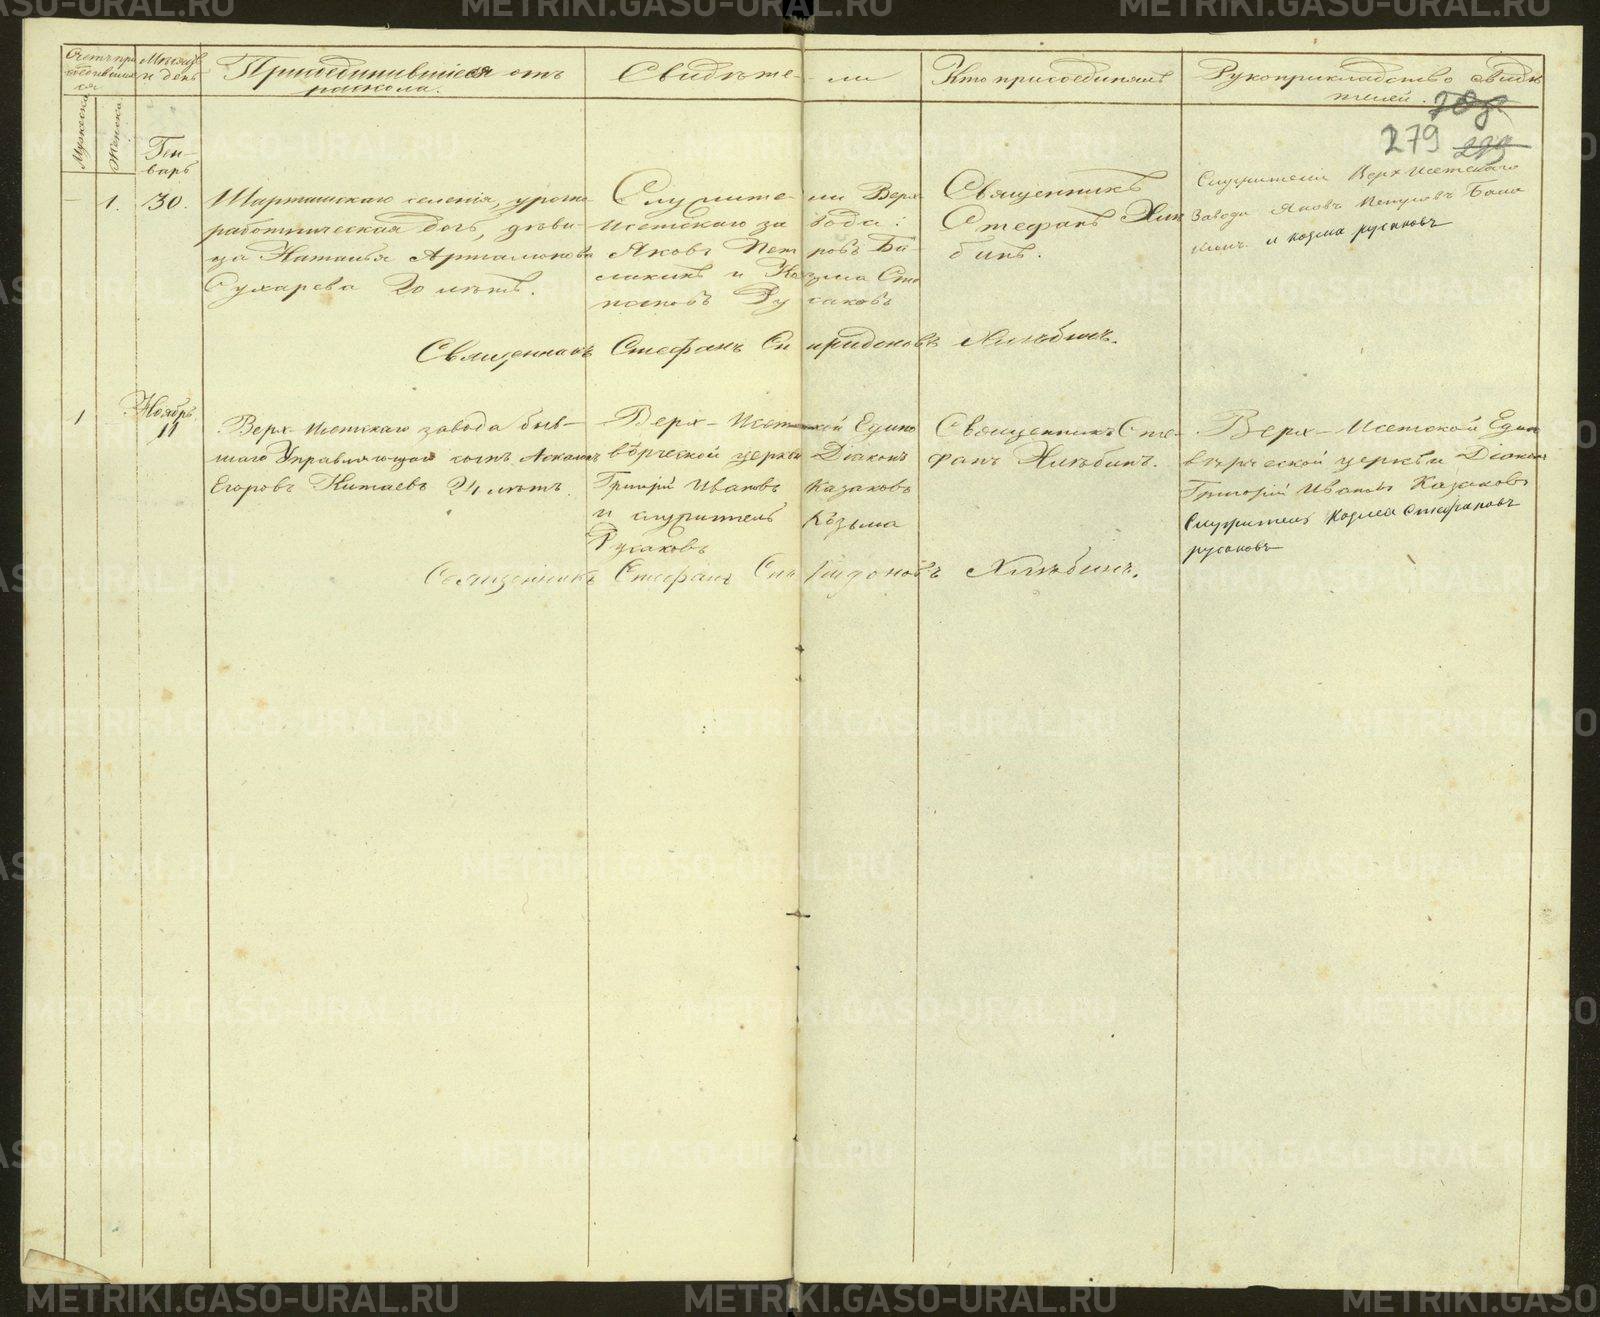 Счетъ при
соединивших
ся
Мѣсяцъ
и день
Присоединившіеся отъ
раскола.
Свидѣте- ли
Кто присоединялъ
Рукоприкладство свидѣ
телей.
Мужеска
Женска
279
Ген-
варь
1. 30.
Шарташскаго селенія, урочно
работническая дочь, дѣви-
ца Наталья Артамонова
Сухарева 20 лѣтъ.
Служите- ли Верх
Исетскаго за вода:
Яковъ Пет ровъ Ба
лакинъ и Козма Сте
пановъ Ру саковъ
Священникъ
Стефанъ Хлѣ
бинъ.
Служители Верх Исетскаго
Завода Яковъ Петровъ Бала
кинъ и козма русаковъ
Священникъ Стефанъ Спиридоновъ Хлѣбинъ.
1
Ноябрь
11
Верх-Исетскаго завода быв-
шаго Управляющаго сынъ
Егоровъ Китаевъ 24 лѣтъ.
Верх-Исетской Едино
вѣрческой церкви Діаконъ
Григорій Ивановъ Казаковъ
и служитель Козьма
Русаковъ
Священникъ Сте-
фанъ Хлѣбинъ.
Верх-Исетской Едино
вѣрческой церкви Діаконъ
Григорій Ивановъ Казаковъ
Служитель Козма Стефановъ
русаковъ
Священникъ Стефанъ Спиридоновъ Хлѣбинъ.
METRIKI.GASO-URAL.RU